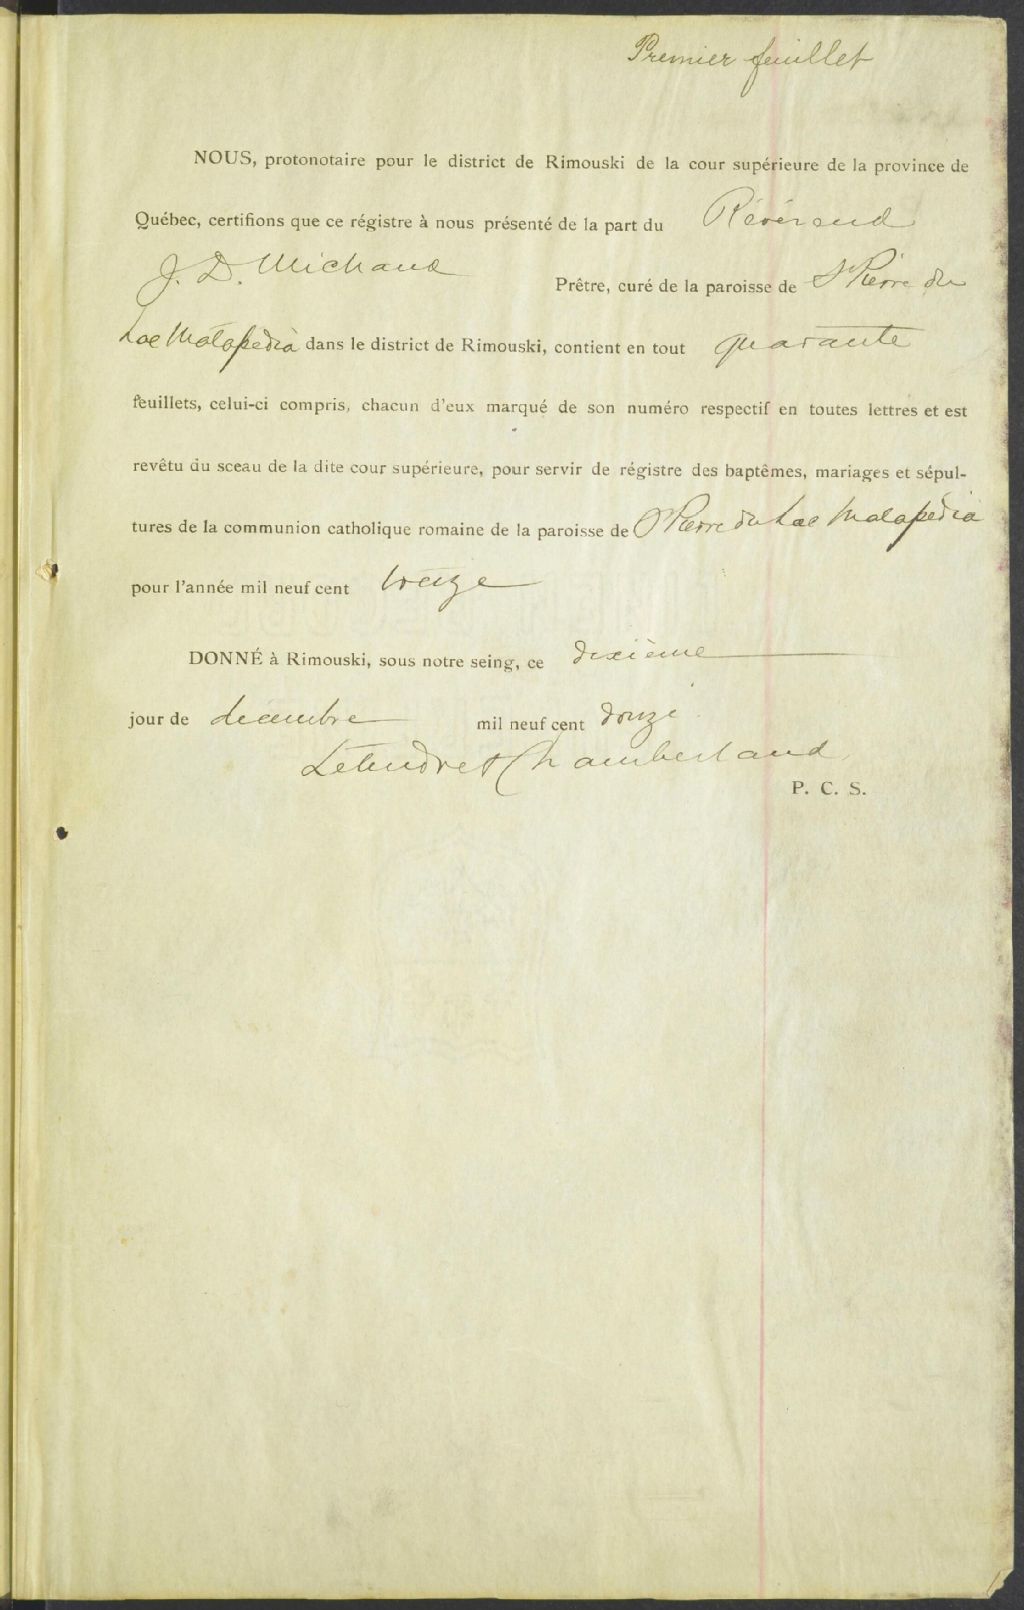 Premier feuillet
NOUS, protonotaire pour le district de Rimouski de la cour supérieure de la province de
Québec, certifions que ce régistre à nous présenté de la part du Révérend
J. D. Michaud Prêtre, curé de la paroisse de St Pierre du
Lac Matapédia dans le district de Rimouski, contient en tout quarante
feuillets, celui-ci compris, chacun d'eux marqué de son numéro respectif en toutes lettres et est
revêtu du sceau de la dite cour supérieure, pour servir de régistre des baptêmes, mariages et sépul-
tures de la communion catholique romaine de la paroisse de St Pierre du Lac Matapédia
pour l'année mil neuf cent treize
DONNÉ à Rimouski, sous notre seing, ce dixième
jour de decembre mil neuf cent douze
Letendre & Chamberland
P. C. S.